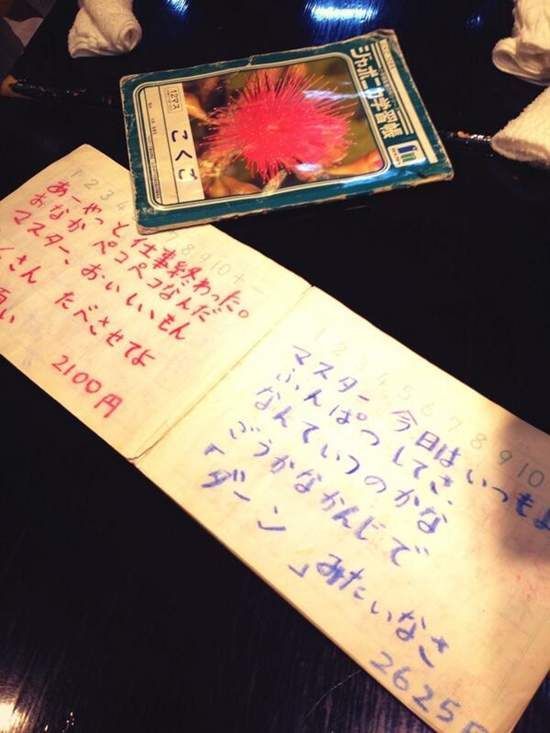 ジャポニカ学習帳
12マス
こくご
1 2 3 4 7 8 9 10 + -
あーやっと仕事終わった。
おなか ペコペコなんだ
マスター、おいしいもん
くさん たべさせてよ
い
2100円
1 2 3 4 5 6 7 8 9 10
マスター 今日はいつもよ
ふんぱつしてさ
なんていうのかな
ごうかなかんじで
「ダーン」みたいなさ
2625